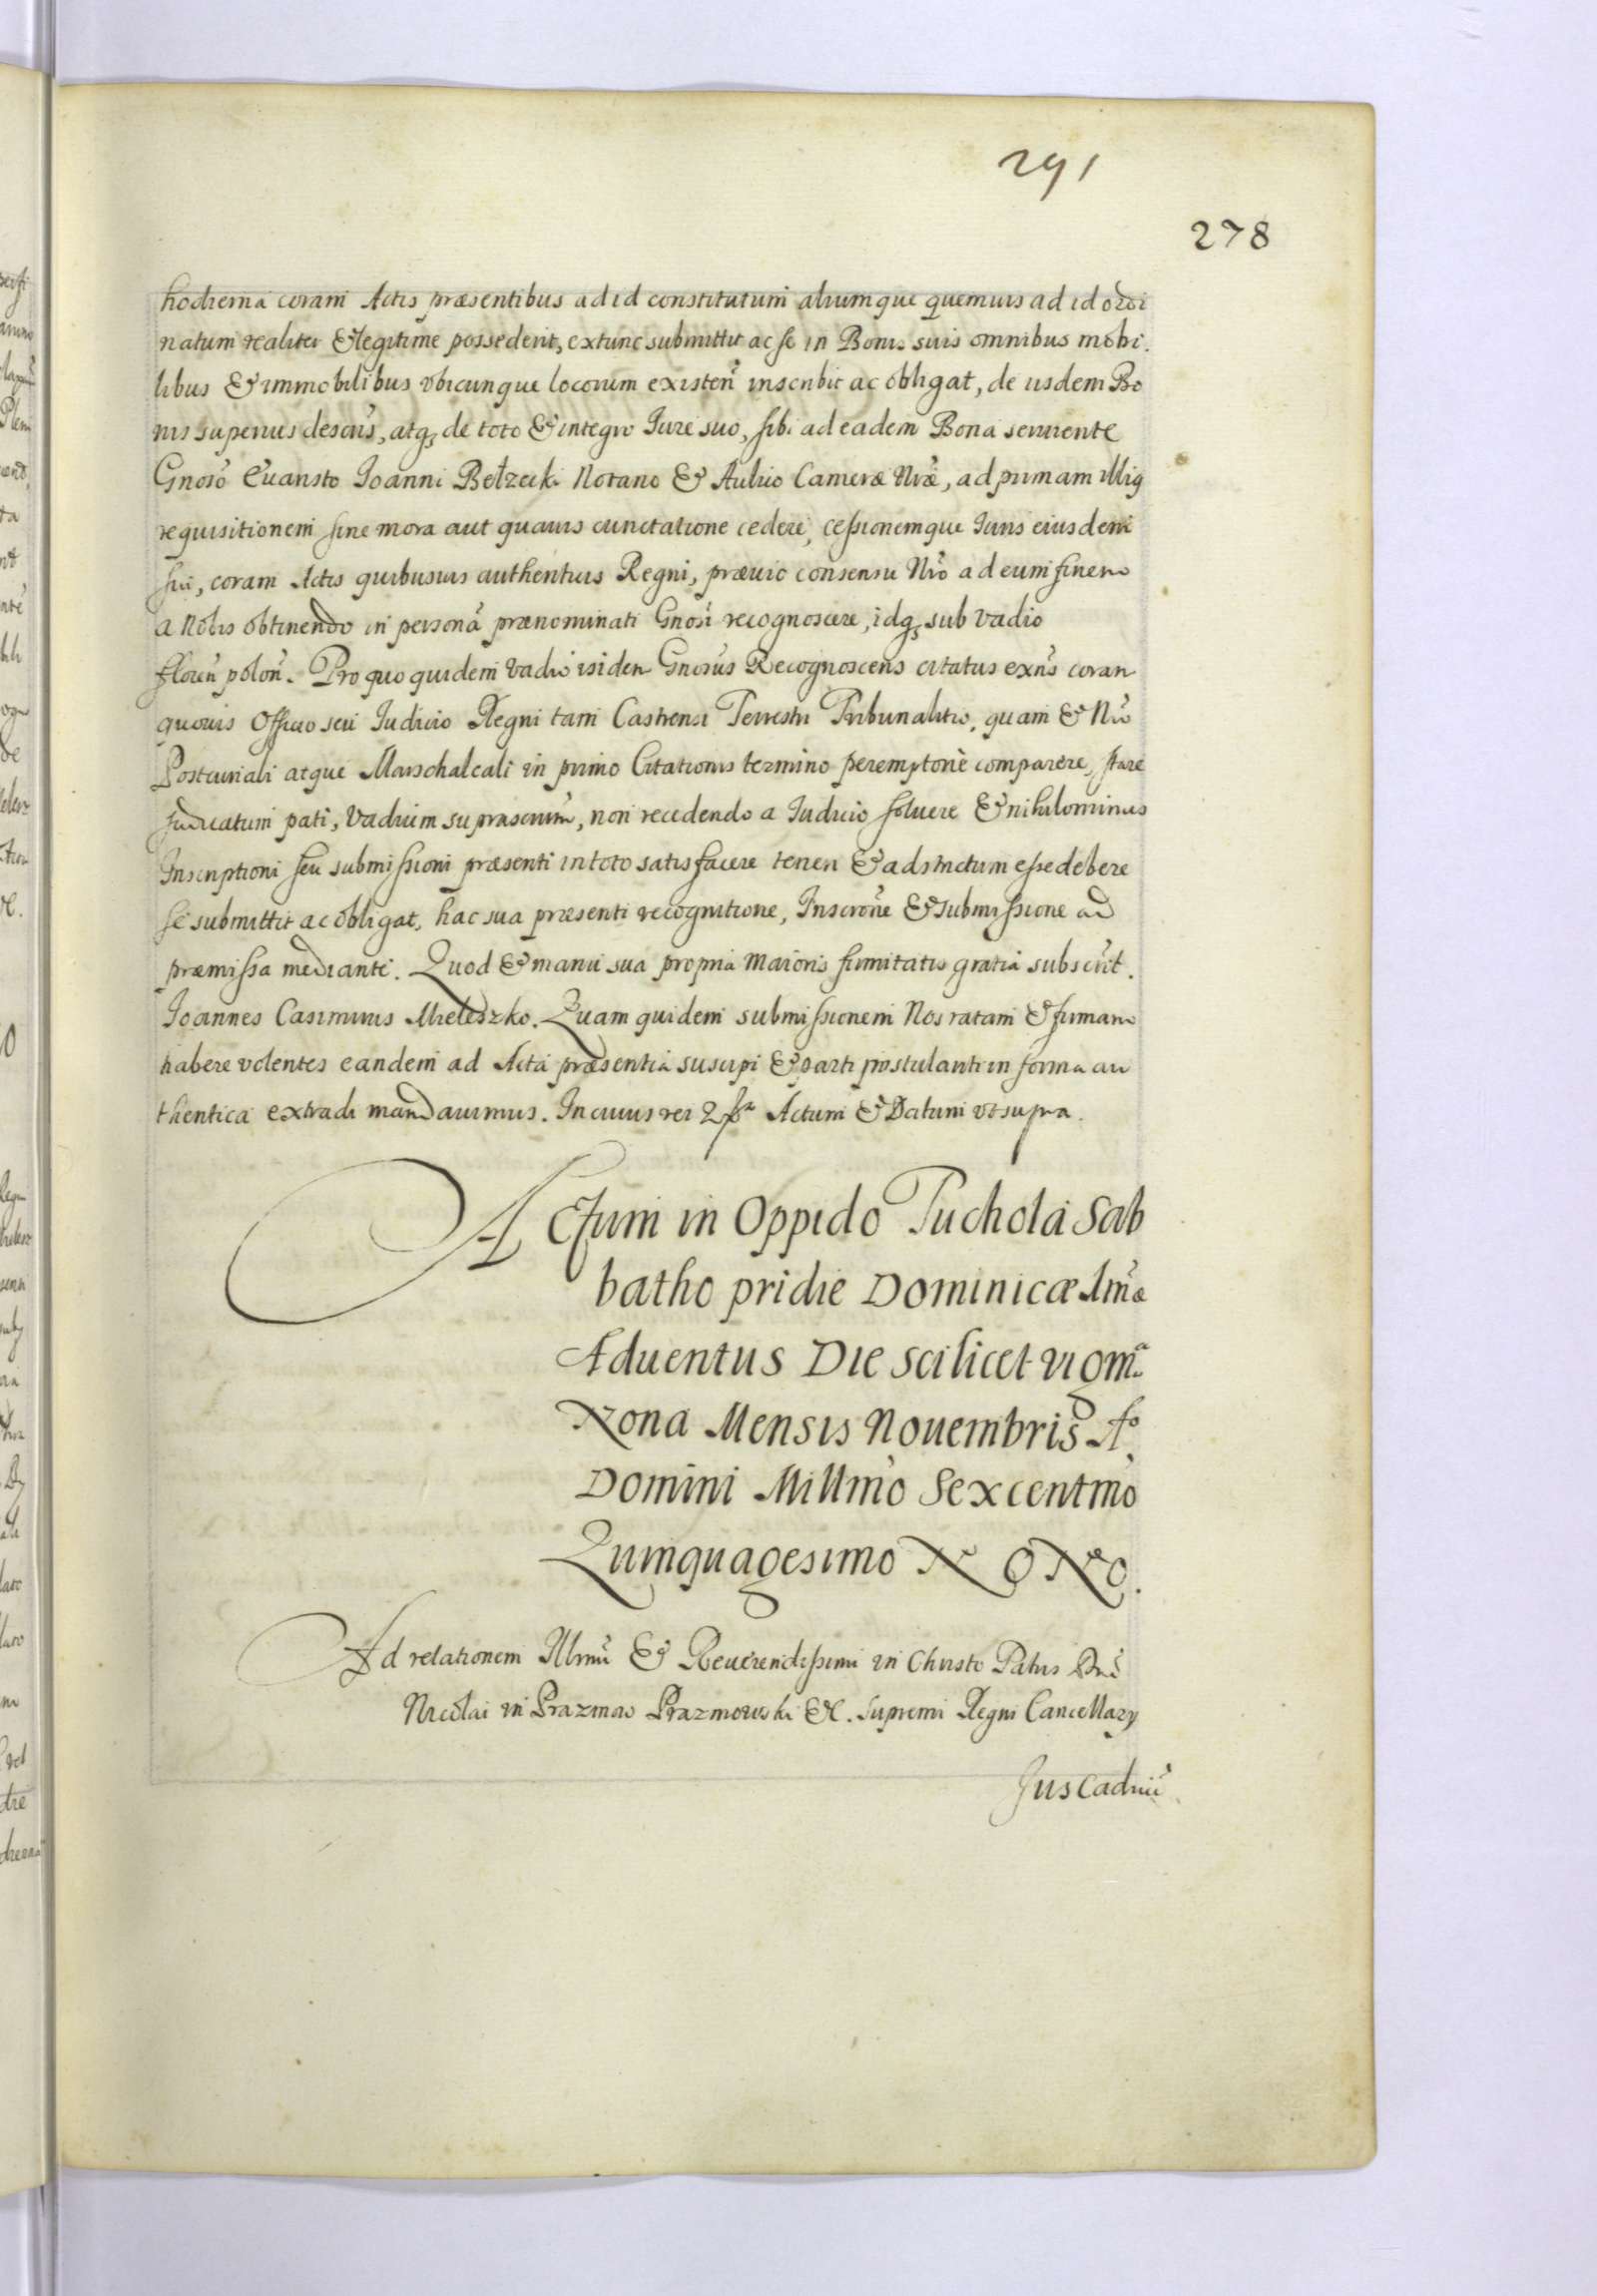 291
278
hodierna coram Actis præsentibus ad id constitutum aliumque quemuis ad id ordi
natum realiter & legitime possederit, extunc submittit ac se in Bonis suis omnibus mobi.
libus & immobilibus vbicunque locorum existeñ inscribit ac obligat, de iisdem Bo
nis superius descris̃, atq3 de toto & integro Iure suo, sibi ad eadem Bona seruiente
Gnoso Euaristo Ioanni Bełzecki Notario & Aulico Cameræ Nræ, ad primam illig
requisitionem sine mora aut quauis cunctatione cedere, cessionemque Iuris eiusdem
sui, coram Actis quibusuis authenticis Regni, præuio consensu Nro ad eum finem
a Nobis obtinendo in persona prænominati Gnosi recognoscere, idq3 sub vadio
floreñ poloñ. Pro quo quidem vadio isidem Gnosus Recognoscens citatus exns̃ coram
quouis Officio seu Iudicio Regni tam Castrensi Terrestri Tribunalitio, quam & Nro
Postcuriali atque Marschalcali in primo Citationis termino peremptoriè comparere, stare
iudicatum pati, vadium suprascrium̃, non recedendo a Iudicio soluere & nihilominus
Inscriptioni seu submissioni præsenti in toto satisfacere teneri & adstrictum esse debere
se submittit ac obligat, hac sua præsenti recognitione, Inscrone & submissione ad
præmissa mediante. Quod & manu sua propria maioris firmitatis gratia subscrit.
Ioannes Casimirus Mieleszko. Quam quidem submissionem Nos ratam & firmam
habere volentes eandem ad Acta præsentia suscipi & parti postulanti in forma au
thentica extradi mandauimus. In cuius rei Actum & Datum vt supra.
Actum in Oppido Tuchola Sab
batho pridie Dominicæ Imæ
Aduentus Die scilicet vigma
Nona Mensis Nouembris Ao
Domini Millmo Sexcentmo
Quinquagesimo NONO.
Ad relationem Illrmi & Reuerendissimi in Christo Patris Dni
Nicolai in Prazmow Prazmowski &c. supremi Regni Cancellarij
Ius Caduũ